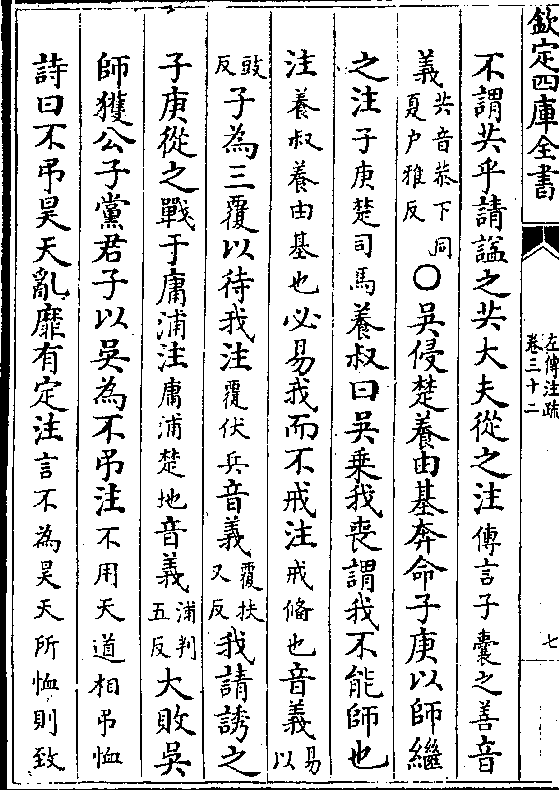 欽定四庫全書
左傳注疏
卷三十二
七
不謂共乎請謚之共大夫從之注傳言子囊之善音
義共音恭下同夏户雅反○吳侵楚養由基奔命子庚以師繼
之注子庚楚司馬養叔曰吳乗我喪謂我不能師也
注養叔養由基也必易我而不戒注戒備也音義易以
豉反子為三覆以待我注覆伏兵音義覆扶又反我請誘之
子庚從之戰于庸浦注庸浦楚地音義浦判五反大敗吳
師獲公子黨君子以吳為不弔注不用天道相弔恤
詩曰不弔昊天亂靡有定注言不為昊天所恤則致